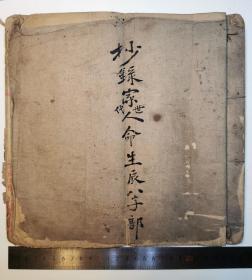 抄錄家世代人命生辰八字部